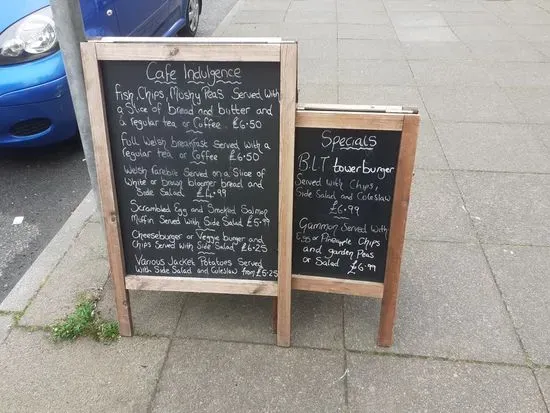 Cafe Indulgence
Fish, Chips, Mushy Peas Served With
a Slice of bread and butter and
a regular tea or Coffee £6.50
Full Welsh Breakfast Served with a
regular tea or Coffee £6.50
Welsh Rarebite Served on a Slice of
White or brown bloomer bread and
Side Salad £4.99
Scrambled Egg and Smoked Salmon
Muffin Served With Side Salad £5.99
Cheeseburger or Veggie burger and
Chips Served With Side Salad £6.25
Various Jacket Potatoes Served
With Side Salad and Coleslaw from £5.25
Specials
B.L.T towerburger
Served with Chips,
Side Salad and Coleslaw
£6.99
Gammon Served With
Egg or Pineapple Chips
and garden Peas
or Salad £6.99